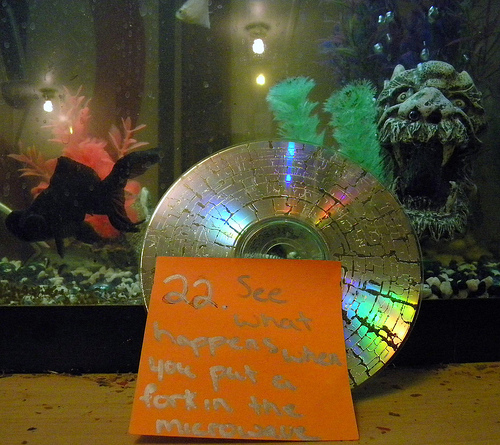 22. See
what
happens when
you put a
fork in the
microwave